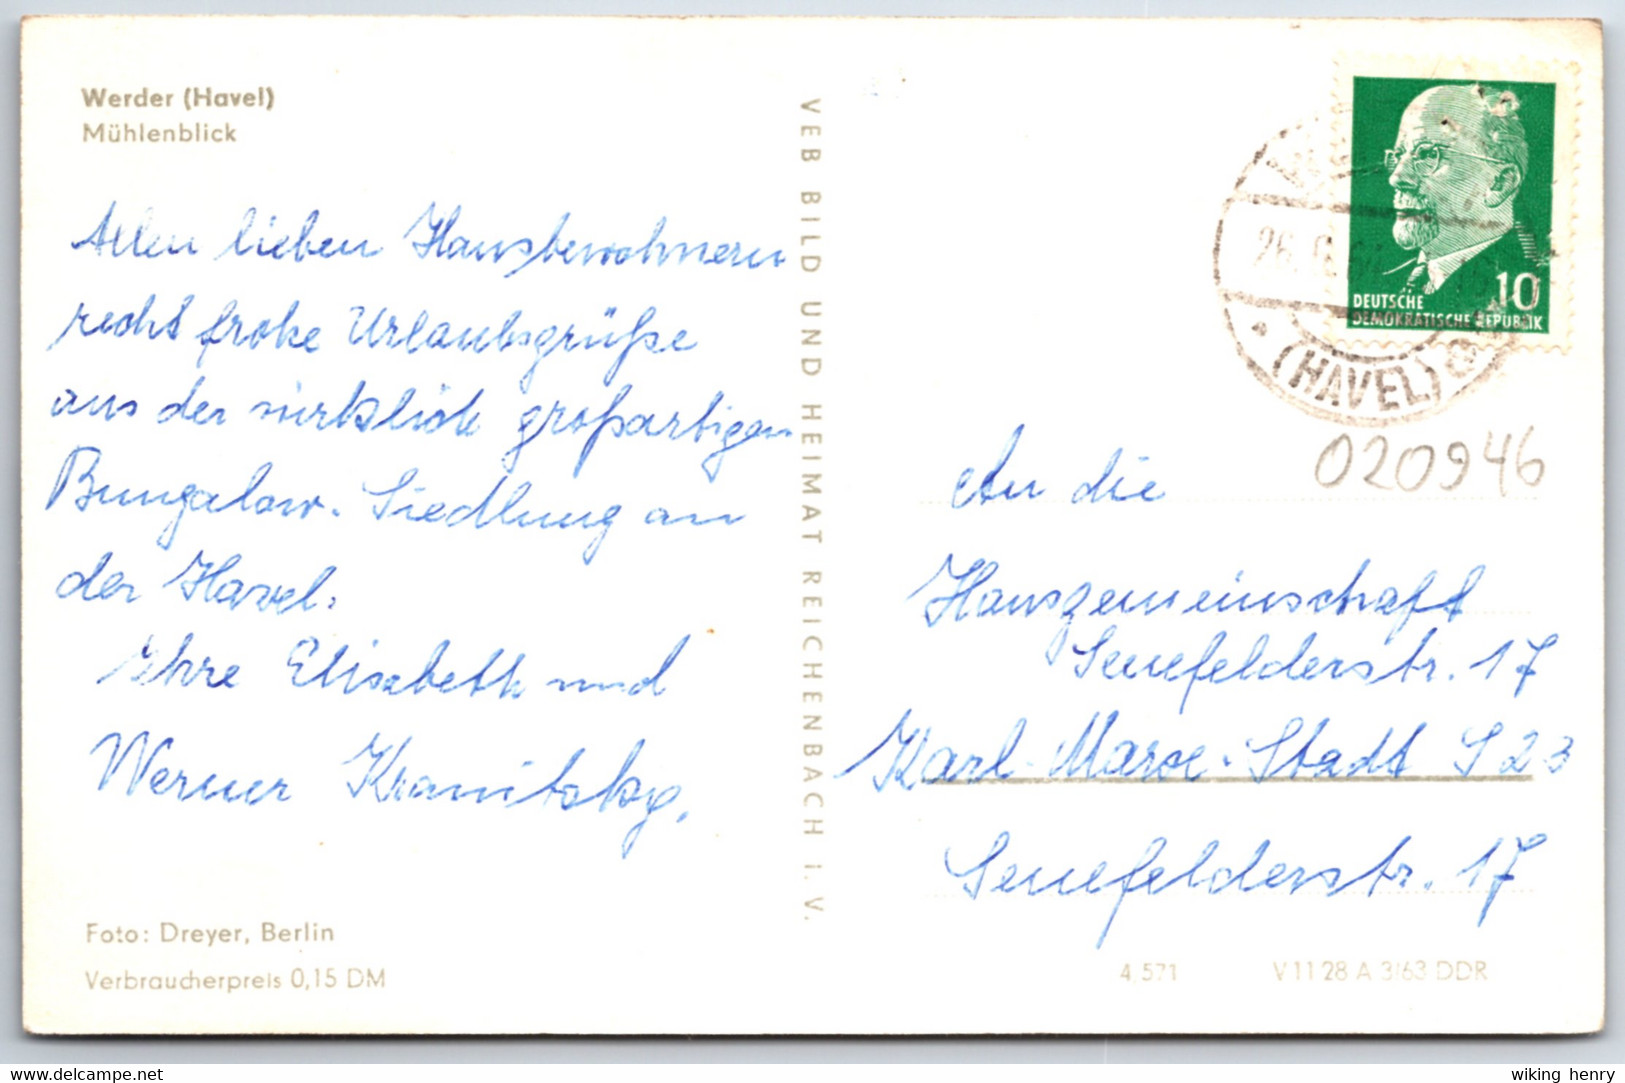 Werder (Havel)
Mühlenblick
Allen lieben Hausbewohnern
recht frohe Urlaubsgrüße
aus der wirklich großartigen
Bungalow-Siedlung an
der Havel.
Ihre Elisabeth und
Werner Kranitzky.
Foto: Dreyer, Berlin
Verbraucherpreis 0,15 DM
VEB BILD UND HEIMAT REICHENBACH I. V.
10
DEUTSCHE
DEMOKRATISCHE REPUBLIK
(HAVEL)
020946
An die
Hausgemeinschaft
Senefelderstr. 17
Karl-Marx-Stadt S 23
Senefelderstr. 17
4.571 V 11 28 A 3/63 DDR
delcampe.net
wiking henry